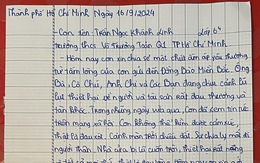 Thành phố Hồ Chí Minh Ngày 16/9/2024
Con tên Trần Ngọc Khánh Linh Lớp 6
trường thcs Võ Trường Toản Q1 TP Hồ Chí Minh
- Hôm nay con xin chia sẻ một chút ấm áp yêu thương
từ tấm lòng của con gửi đến Đồng Bào Miền Bắc. Ông
Bà, Cô Chú, Anh Chị và Các Bạn đang chịu cảnh bão
lũ thiệt hại về người và tài sản rất đau thương và
tàn khốc. Trong những ngày vừa qua, Con đã xem tin tức
trên mạng xã hội. Con không thể kìm được cảm xúc,
thật là đau xót. Cảnh màn trời chiếu đất. Sự chia ly mất đi
người thân. Nhà cửa bị lũ cuốn trôi, thiệt hại rất nặng